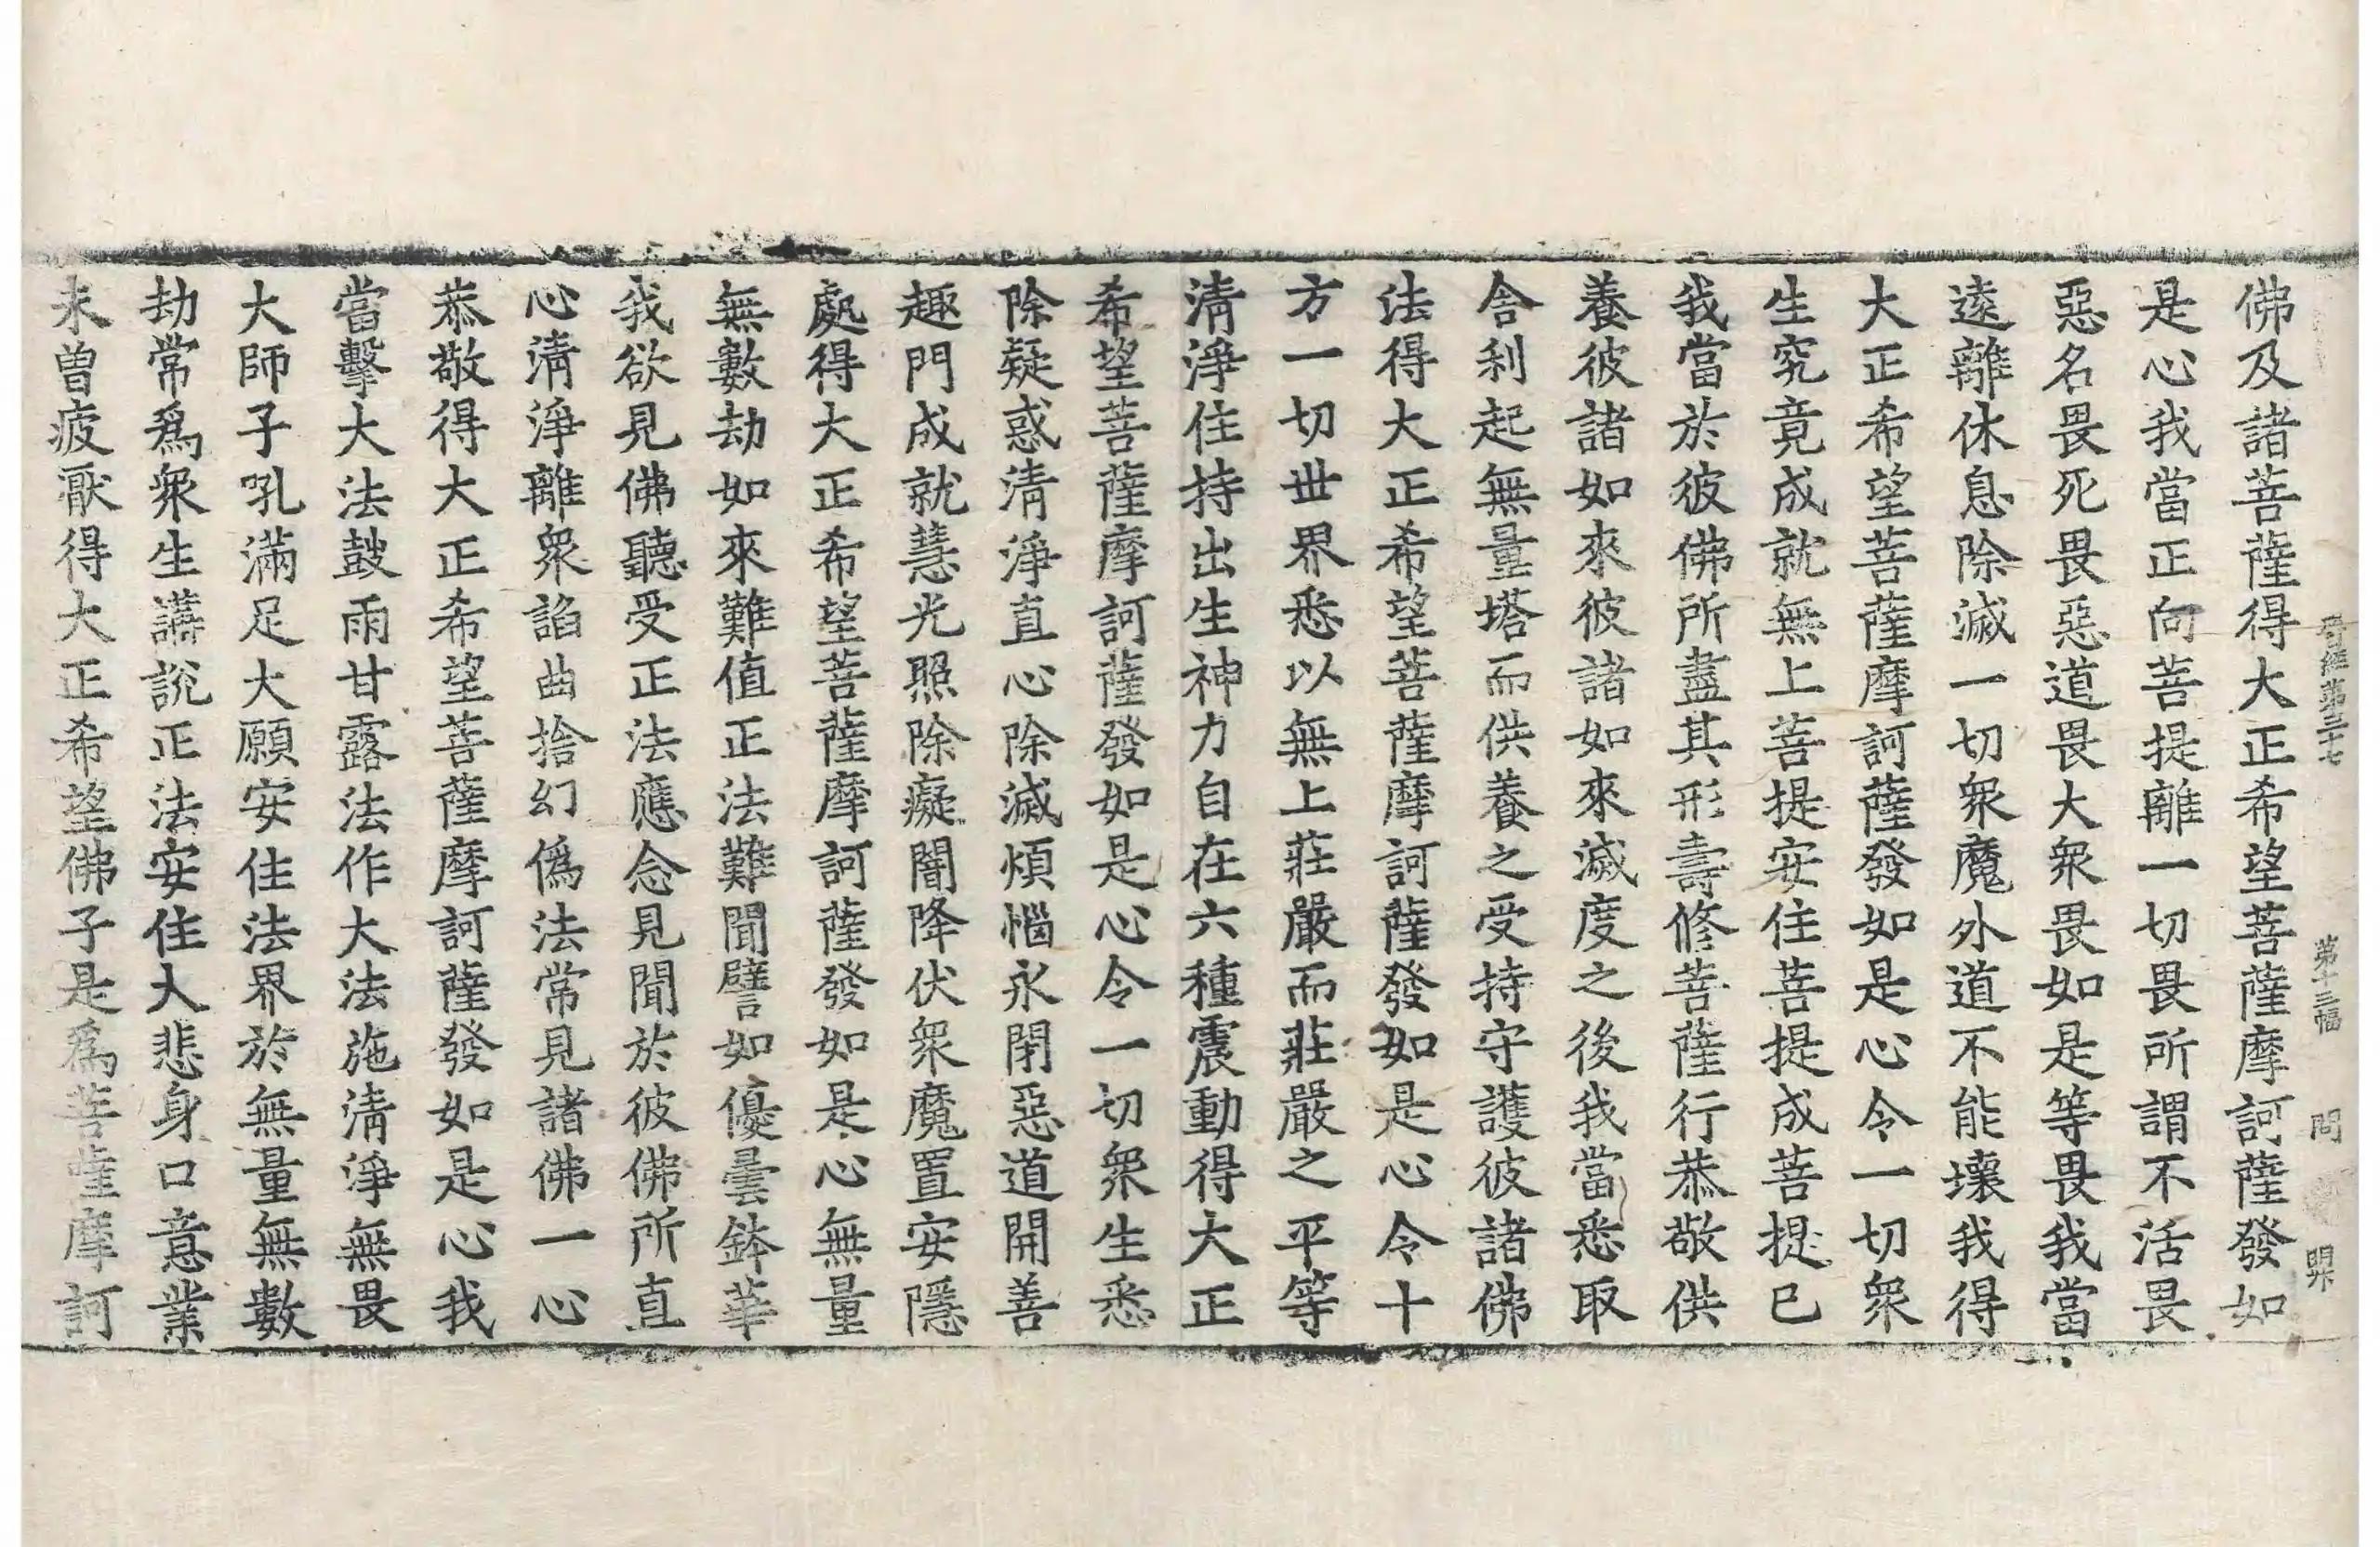 晉經第三十七 第十三幅 問
佛及諸菩薩得大正希望菩薩摩訶薩發如
是心我當正向菩提離一切畏所謂不活畏
惡名畏死畏惡道畏大衆畏如是等畏我當
遠離休息除滅一切衆魔外道不能壞我得
大正希望菩薩摩訶薩發如是心令一切衆
生究竟成就無上菩提安住菩提成菩提已
我當於彼佛所盡其形壽修菩薩行恭敬供
養彼諸如來彼諸如來滅度之後我當悉取
舍利起無量塔而供養之受持守護彼諸佛
法得大正希望菩薩摩訶薩發如是心令十
方一切世界悉以無上莊嚴而莊嚴之平等
清淨住持出生神力自在六種震動得大正
希望菩薩摩訶薩發如是心令一切衆生悉
除疑惑清淨直心除滅煩惱永閉惡道開善
趣門成就慧光照除癡闇降伏衆魔置安隱
處得大正希望菩薩摩訶薩發如是心無量
無數劫如來難值正法難聞譬如優曇鉢華
我欲見佛聽受正法應念見聞於彼佛所直
心清淨離衆諂曲捨幻僞法常見諸佛一心
恭敬得大正希望菩薩摩訶薩發如是心我
當擊大法鼓雨甘露法作大法施清淨無畏
大師子吼滿足大願安住法界於無量無數
劫常爲衆生講說正法安住大悲身口意業
未曾疲厭得大正希望佛子是爲菩薩摩訶